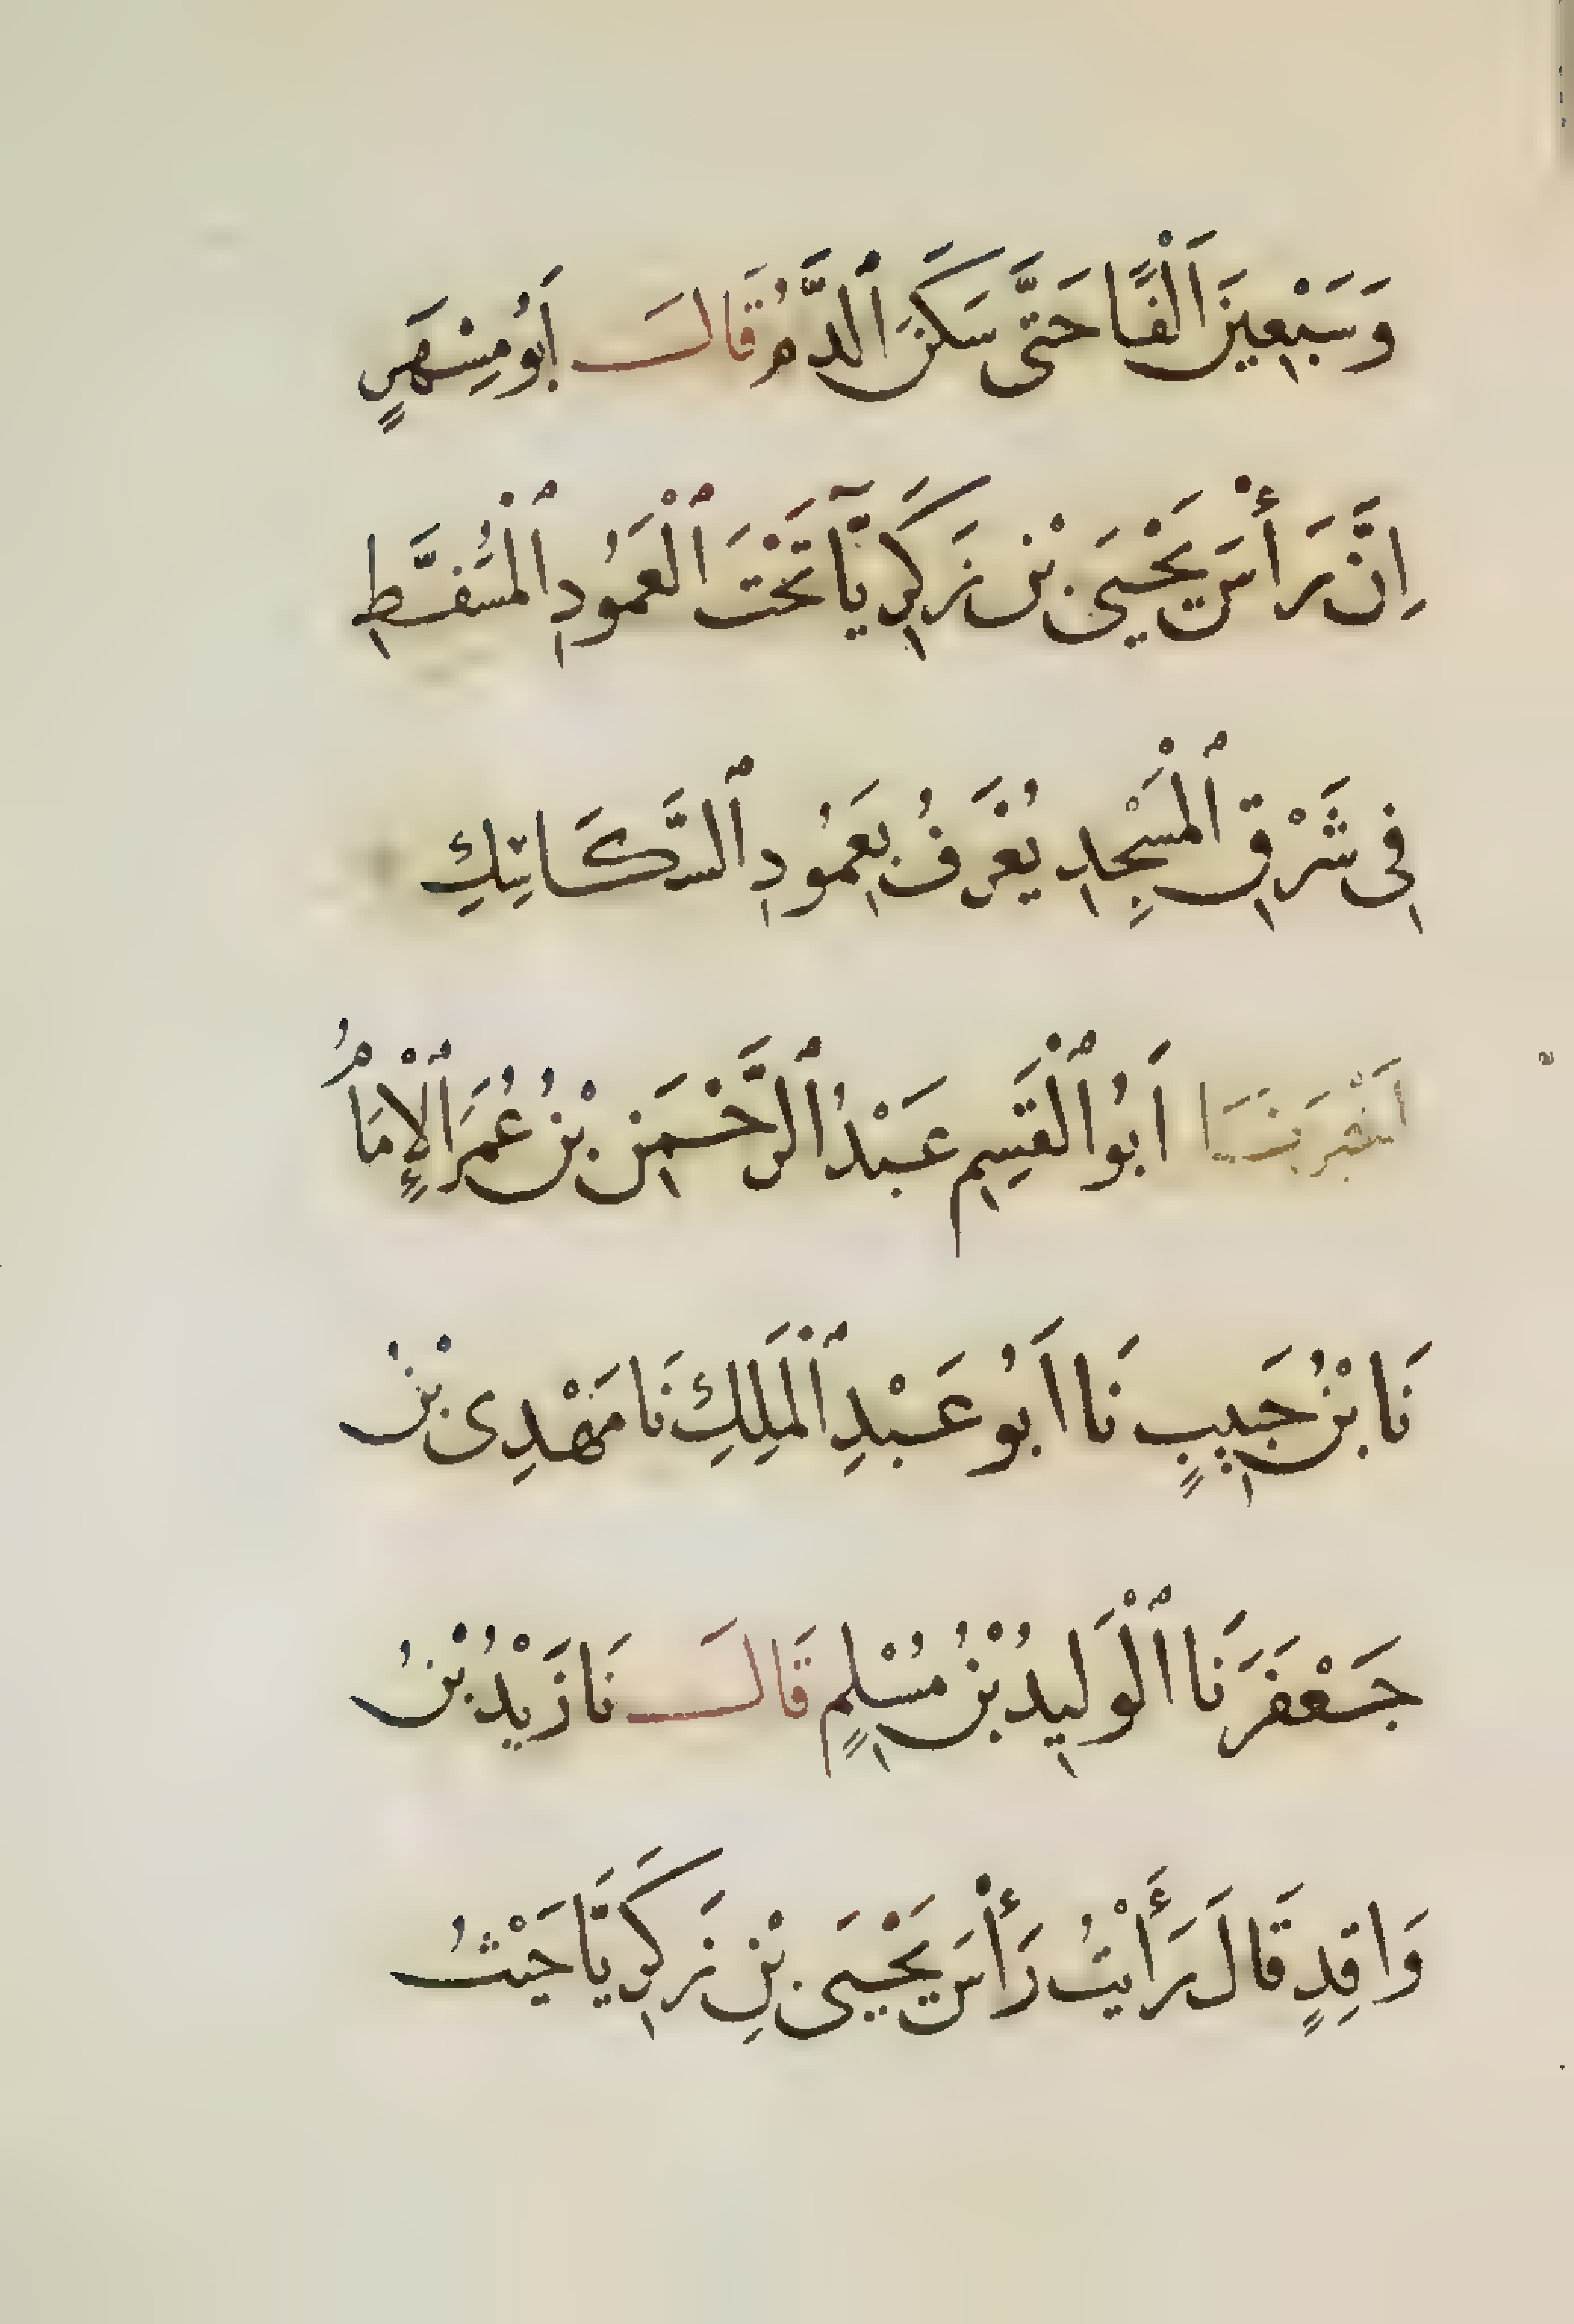 وَسَبْعِينَ اَلْفًا حَتَّى سَكَنَ ٱلدَّمُ قَالَ اَبُو مِسْهَرٍ
اِنَّ رَأْسَ يَحْيَى بْنِ زَكَرِيَّآ تَحْتَ ٱلْعَمُودِ ٱلْمُسَفَّطِ
فِى شَرْقِ ٱلْمَسْجِدِ يُعْرَفُ بِعَمُودِ ٱلسَّكَاسِكِ
اَخْبَرَنَا اَبُو ٱلْقَسِمِ عَبْدُ ٱلرَّحْمَنِ بْنُ عُمَرَ ٱلْإِمَامُ
نَا بْنُ حَبِيبٍ نَا اَبُو عَبْدِ ٱلْمَلِكِ نَا مَهْدِى بْنُ
جَعْفَرَ نَا ٱلْوَلِيدُ بْنُ مُسْلِمٍ قَالَ نَا زَيْدُ بْنُ
وَاقِدٍ قَالَ رَأَيْتُ رَأْسَ يَحْيَى بْنِ زَكَرِيَّا حَيْثُ